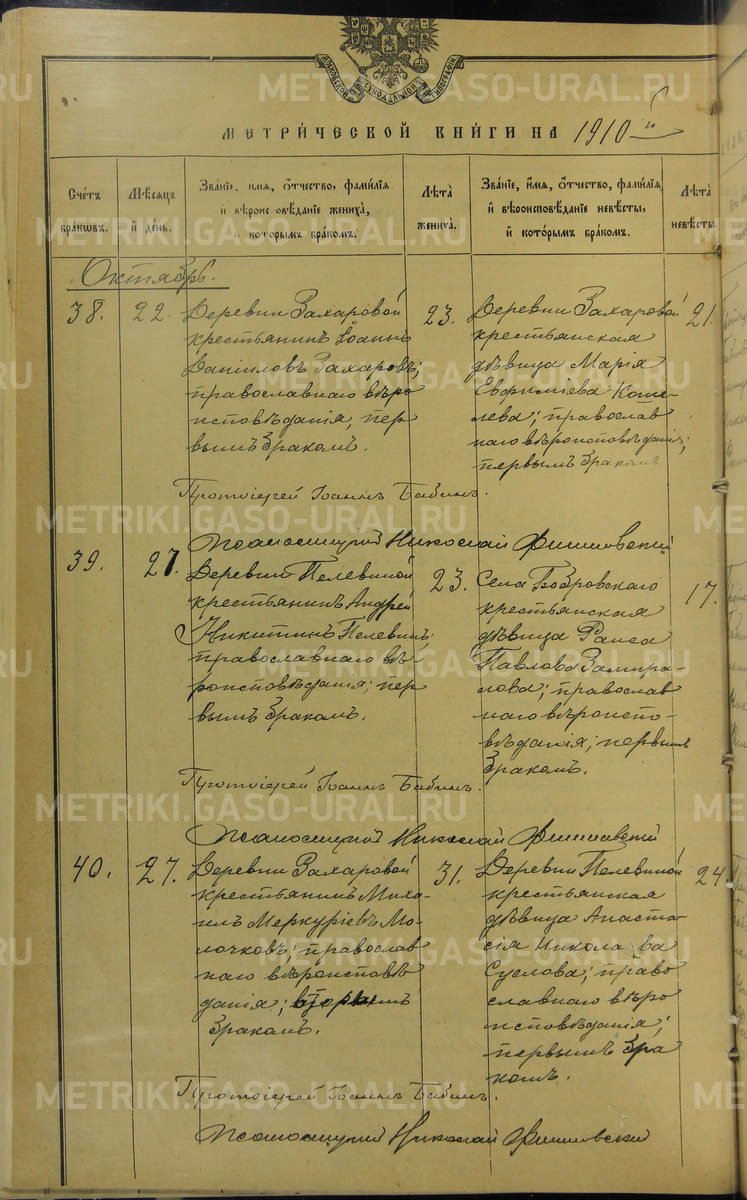 МОСКОВСКОЙ СѴНОДАЛЬНОЙ ТИПОГРАФІИ
МЕТРИ́ЧЕСКОЙ КНИ́ГИ НА 1910 й
Сче́тъ бра́кѡвъ.
Мѣ́сѧцъ и҆ де́нь.
Зва́нїе, и҆́мѧ, ѻ҆́тчество, фамі́лїѧ и҆ вѣ́роисповѣ́данїе жениха̀, и҆ кото́рымъ бра́комъ.
Лѣ́та жениха̀.
Зва́нїе, и҆́мѧ, ѻ҆́тчество, фамі́лїѧ и҆ вѣ́роисповѣ́данїе невѣ́сты, и҆ кото́рымъ бра́комъ.
Лѣ́та невѣ́сты.
Октябрь.
38.
22.
Деревни Захаровой
крестьянинъ Іоаннъ
Даніиловъ Захаровъ;
православнаго вѣро
исповѣданія, пер
вымъ бракомъ.
23.
Деревни Захаровой
крестьянская
дѣвица Марія
Евфиміева Коше-
лева; православ
наго вѣроисповѣданія;
первымъ бракомъ
21.
Протоіерей Іоаннъ Бабинъ.
Псаломщикъ Николай
39.
27.
Деревни Пелевиной
крестьянинъ Андрей
Никитинъ Пелевинъ;
православнаго вѣ-
роисповѣданія; пер
вымъ бракомъ.
23.
Села Бобровскаго
крестьянская
дѣвица Раиса
Павлова Замира-
лова; православ
наго вѣроиспо-
вѣданія; первымъ
бракомъ.
17.
Протоіерей Іоаннъ Бабинъ.
Псаломщикъ Николай
40.
27.
Деревни Захаровой
крестьянинъ Миха
илъ Меркуріевъ Мо-
лочковъ; православ
наго вѣроисповѣ
данія; вторымъ
бракомъ.
31.
Деревни Пелевиной
крестьянская
дѣвица Анаста-
сія Никола ва
Суслова; право
славнаго вѣро
исповѣданія;
первымъ бра
комъ.
24
Протоіерей Іоаннъ Бабинъ.
Псаломщикъ Николай
METRIKI.GASO-URAL.RU